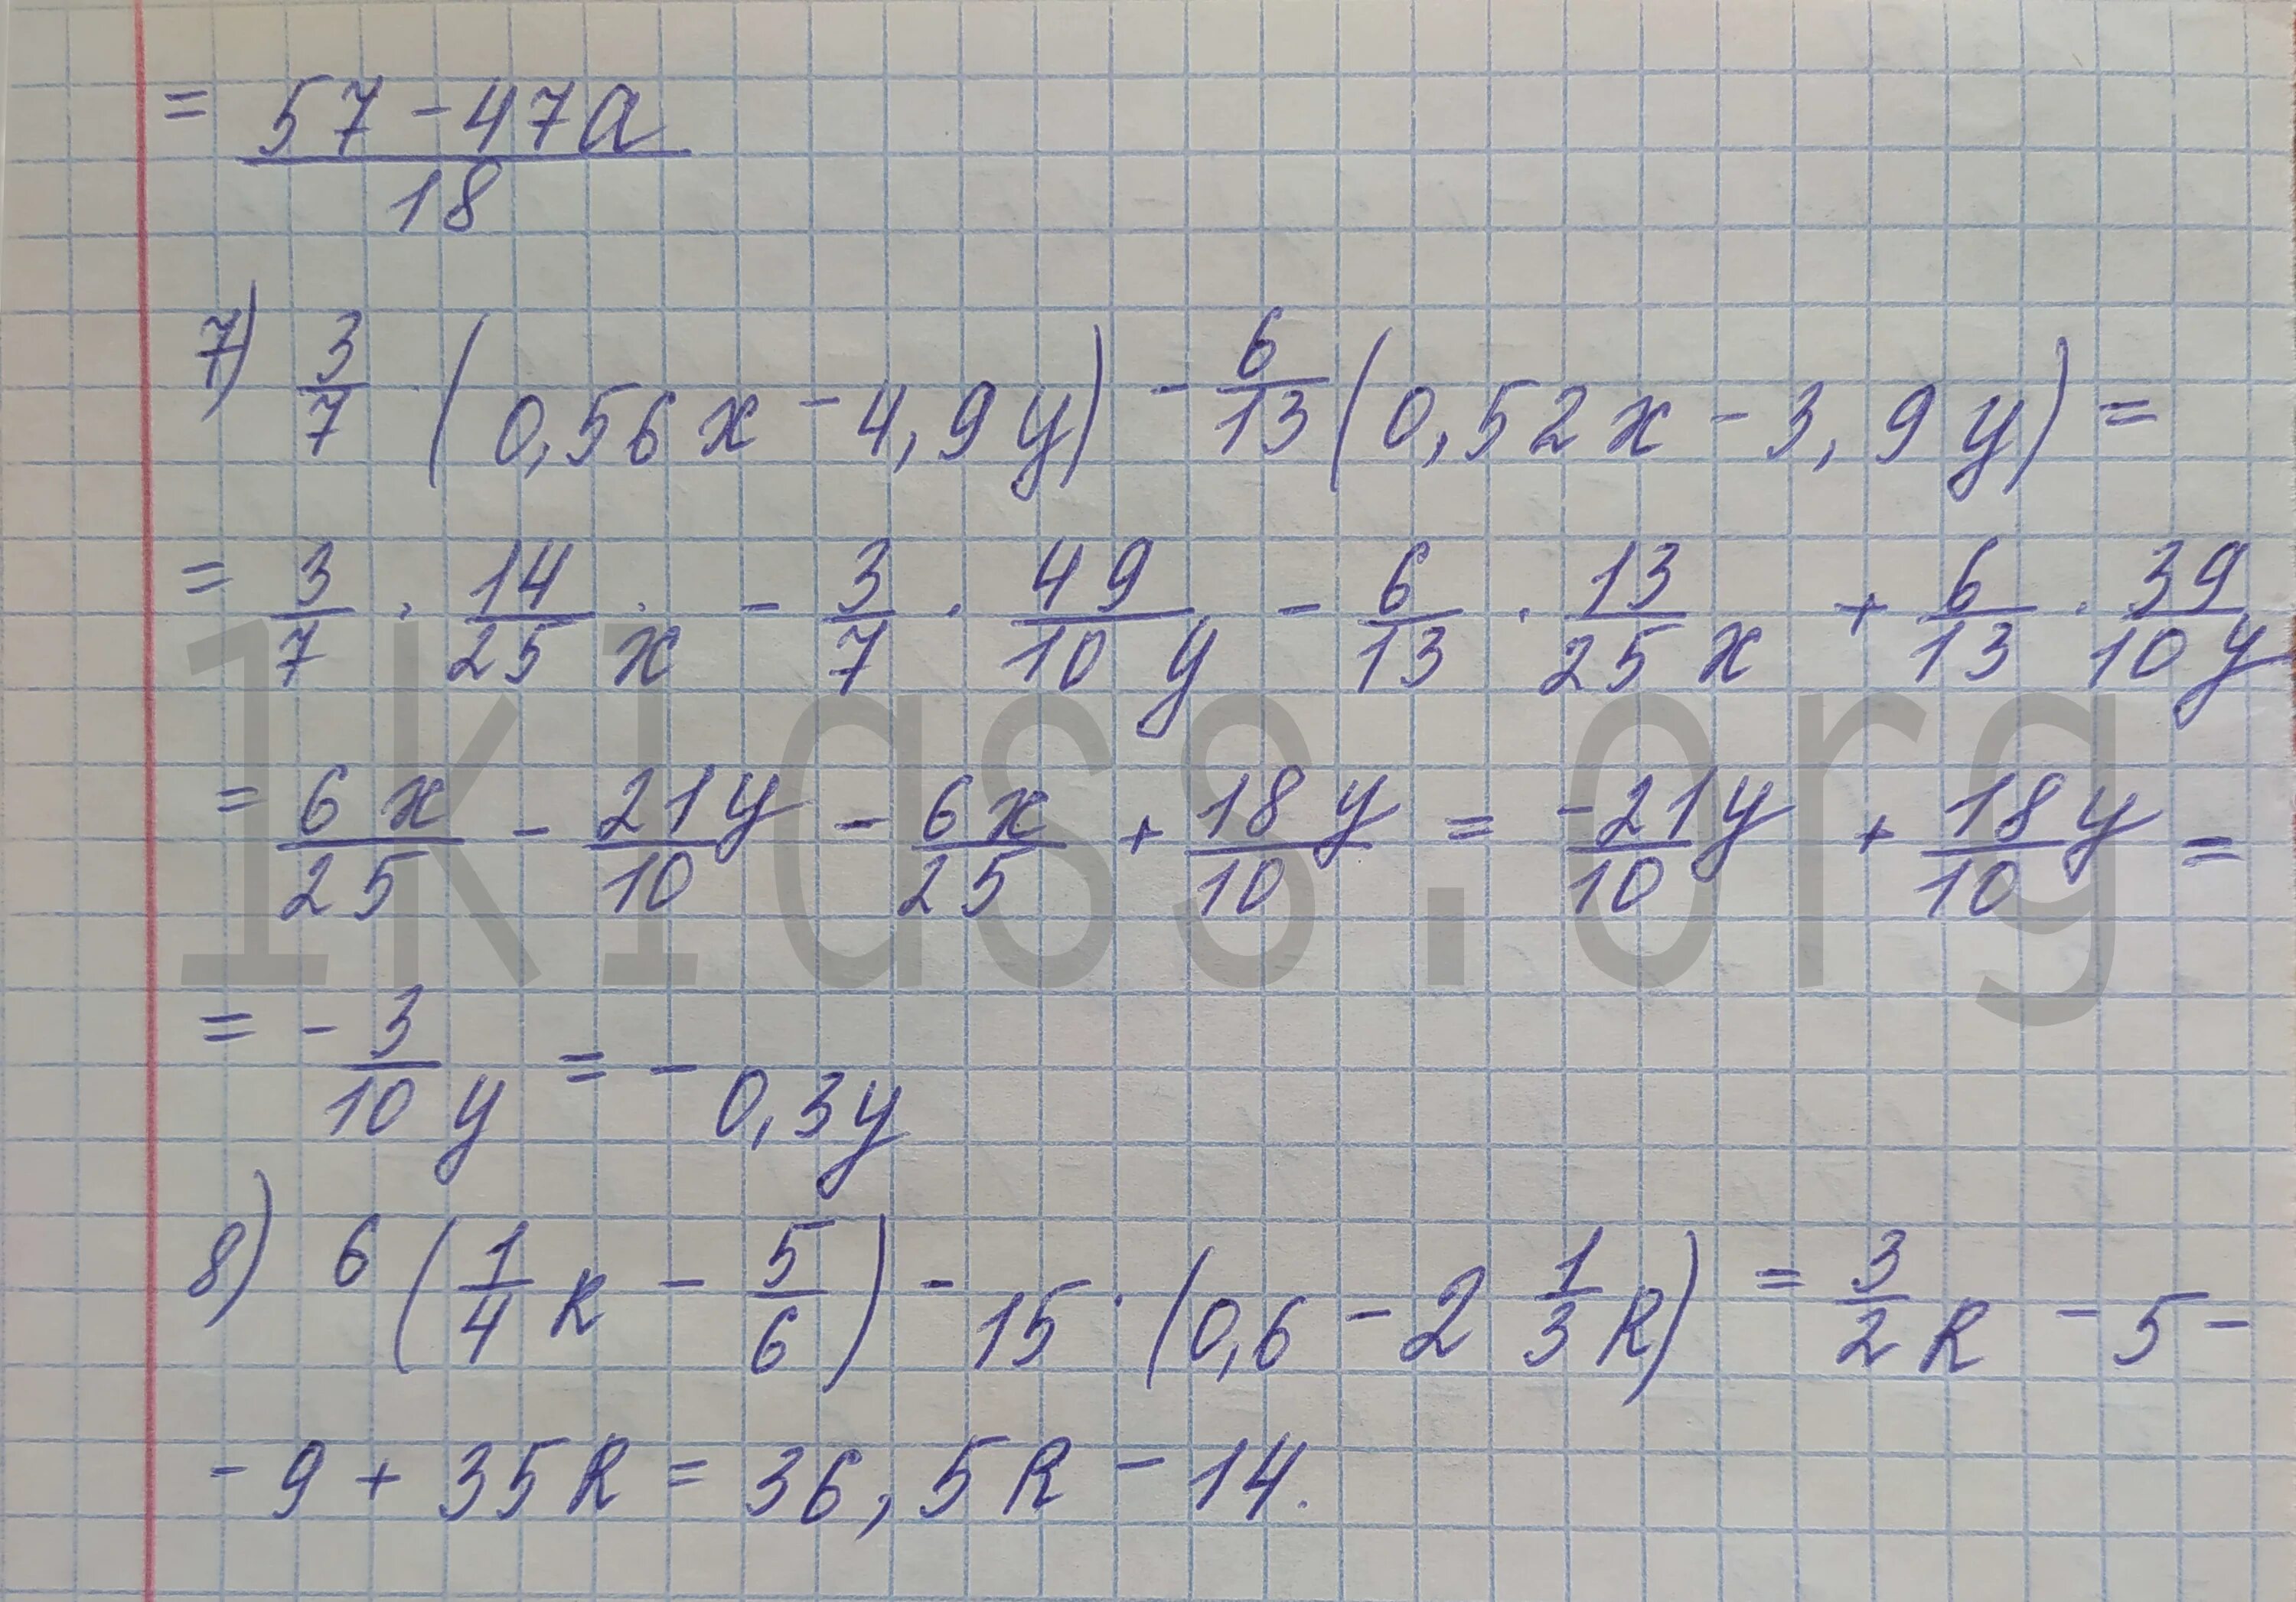 = \frac{57 - 47a}{18}
7) \frac{3}{7} · (0,56x - 4,9y) - \frac{6}{13}(0,52x - 3,9y) =
= \frac{3}{7} · \frac{14}{25} x - \frac{3}{7} · \frac{49}{10} y - \frac{6}{13} · \frac{13}{25} x + \frac{6}{13} · \frac{39}{10} y
1klass.org
= \frac{6x}{25} - \frac{21}{10}y - \frac{6x}{25} + \frac{18}{10}y = \frac{-21}{10}y + \frac{18}{10}y =
= - \frac{3}{10} y = - 0,3y
8) 6 (\frac{1}{4}k - \frac{5}{6}) - 15 · (0,6 - 2\frac{1}{3}k) = \frac{3}{2}k - 5 -
- 9 + 35k = 36,5k - 14.